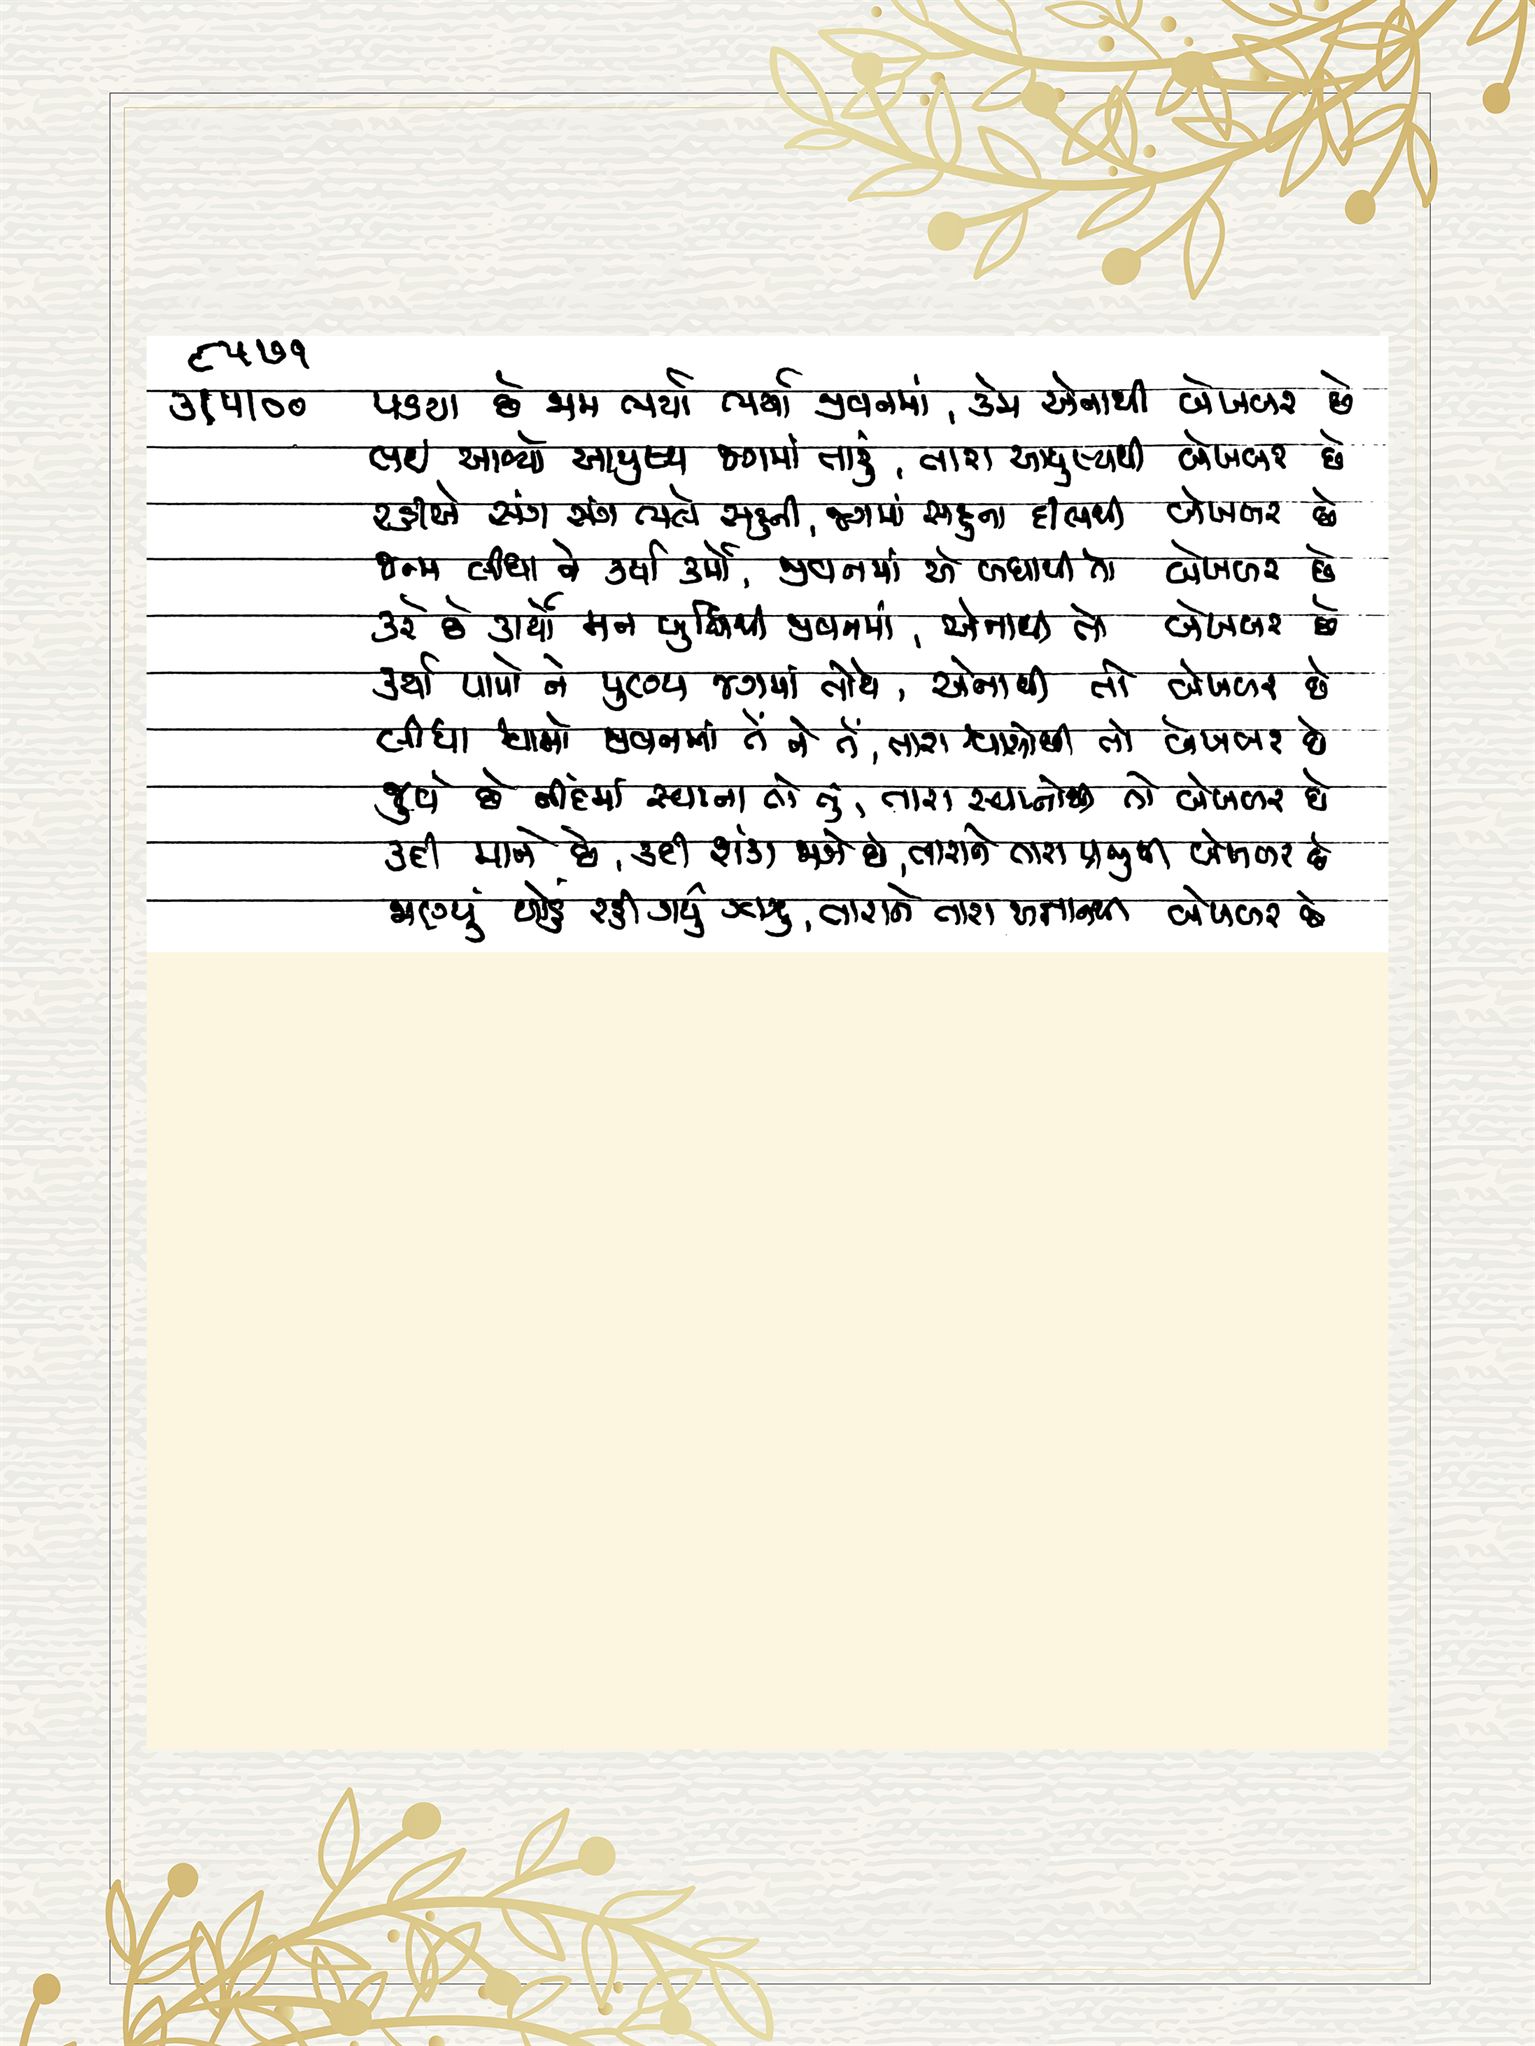 ૯૫૭૧
૩/૫/૦૦ પડયા છે ભમ ત્યાં જીવનમાં, કેમ એનાથી બેખબર છે
લઈ આવ્યો આયુષ્ય જગમાં તારું, તારા આયુષ્યથી બેખબર છે
રહીએ સંગ સંગ સહુની, જગમાં સહુના દીલથી બેખબર છે
જન્મ લીધા ને કર્યા કર્મો, જીવનમાં એ બધાથી તો બેખબર છે
કરે છે કાર્યો મન બુદ્ધિથી જીવનમાં, એનાથી તો બેખબર છે
કર્યા પાપો ને પુણ્ય જગમાં તોયે, એનાથી તો બેખબર છે
લીધા શ્વાસો જીવનમાં તેં ને તેં, તારા શ્વાસોથી તો બેખબર છે
જુવે છે નીંદમાં સ્વપ્ના તો તું, તારા સ્વપ્નોથી તો બેખબર છે
કદી માને છે, કદી શંકા જાગે છે, તારાને તારા પ્રભુથી બેખબર છે
ભણ્યું થોડું રહી ગયું ઝાઝુ, તારાને તારા અજ્ઞાનથી બેખબર છે